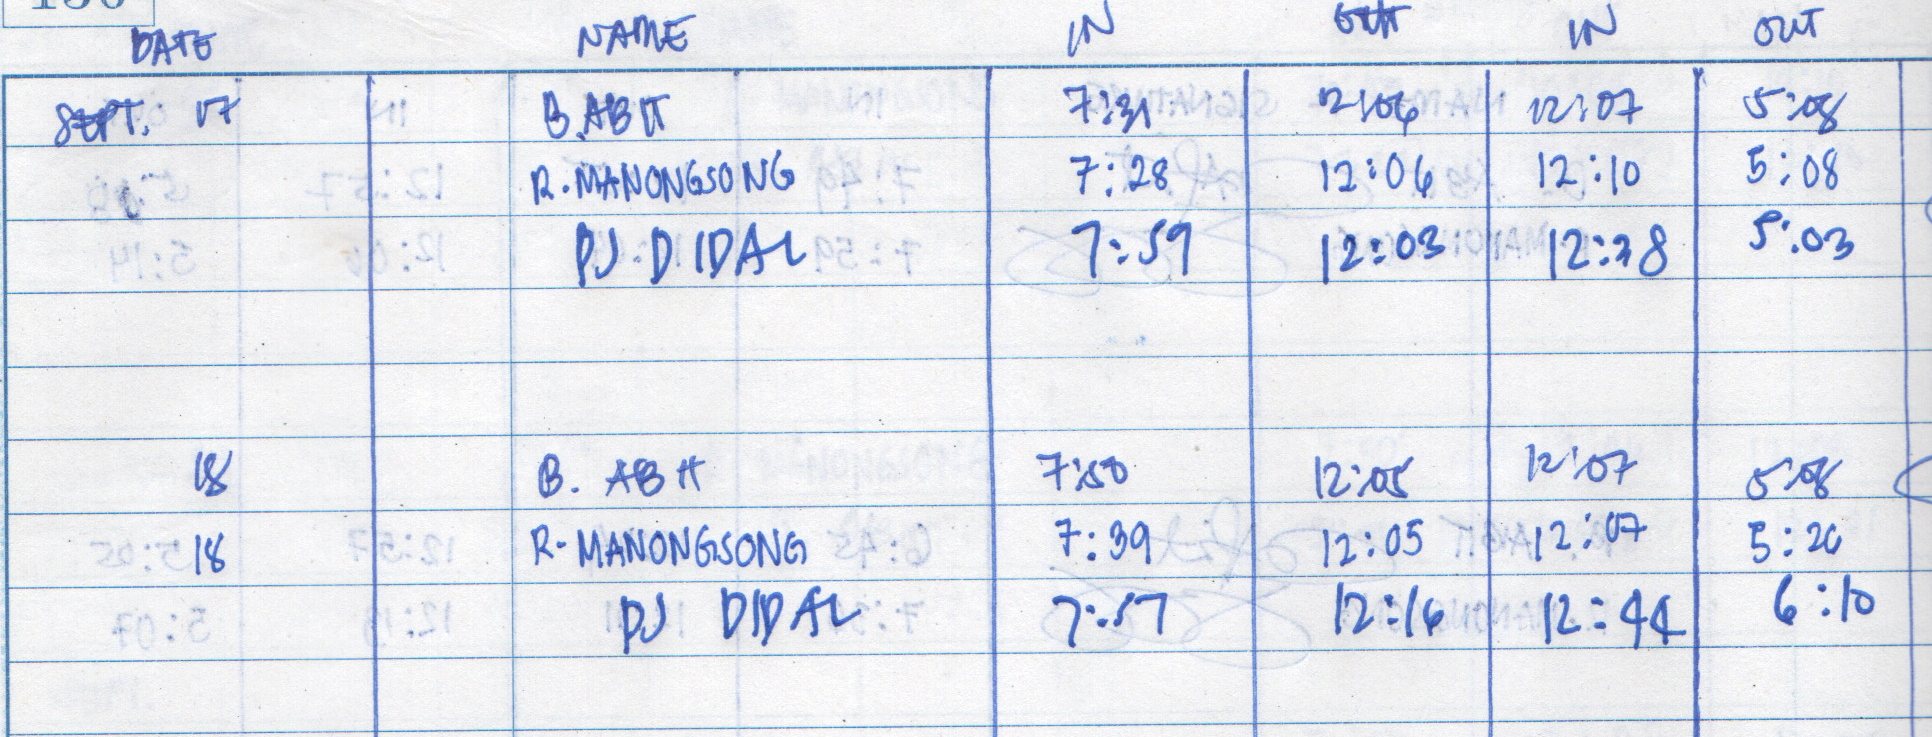 DATE NAME IN OUT IN OUT
SEPT. 17 B. ABIT 7:31 12:06 12:07 5:08
R. MANONGSONG 7:28 12:06 12:10 5:08
PJ DIDAL 7:59 12:03 12:38 5:03
18 B. ABIT 7:50 12:05 12:07 5:08
18 R. MANONGSONG 7:39 12:05 12:07 5:26
PJ DIDAL 7:57 12:16 12:44 6:10